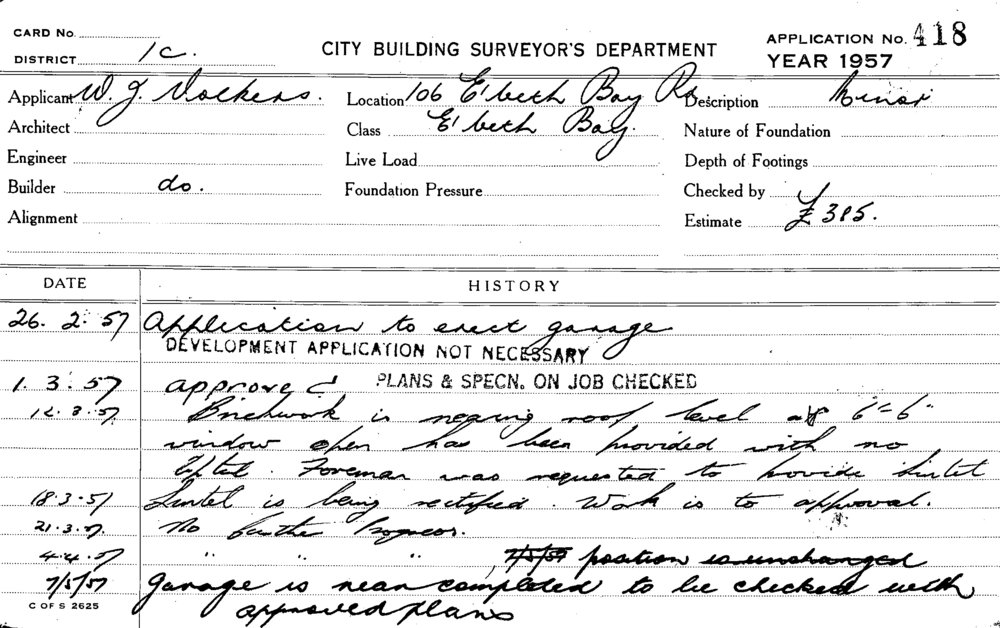 CARD No.
DISTRICT 1C.
CITY BUILDING SURVEYOR'S DEPARTMENT
APPLICATION No. 418
YEAR 1957
Applicant W. J. Location 106 E'beth Bay Rd Description Minor
Architect Class E'beth Bay. Nature of Foundation
Engineer Live Load Depth of Footings
Builder do. Foundation Pressure Checked by
Alignment Estimate £385.
DATE HISTORY
26. 2. 57 Application to erect garage
DEVELOPMENT APPLICATION NOT NECESSARY
1. 3. 57 approved PLANS & SPECN. ON JOB CHECKED
12. 3. 57 Brickwork is nearing roof level 6'-6"
window open has been provided with no
lintel. Foreman was requested to provide lintel
18.3.57 Lintel is being rectified. Work is to approval.
21.3.57. No further Progress.
4.4.57 " " " 7/5/57 position is unchanged
7/5/57 Garage is near completed to be checked with
approved plans
C OF S 2625